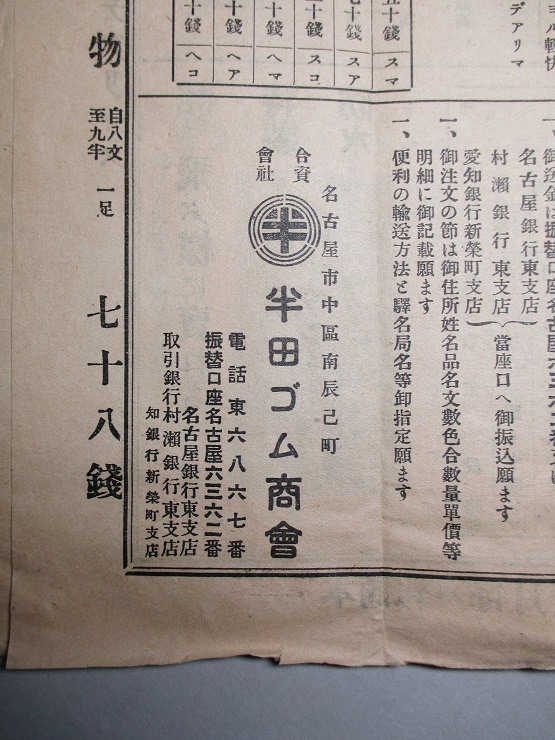 デアリマ
ヨル輕快
五十錢 スマ
七十錢 スア
十錢 スコ
十錢 ヘマ
十錢 ヘア
十錢 ヘコ
名古屋銀行東支店
村瀬銀行東支店
愛知銀行新榮町支店
當座口へ御振込願ます
一、御注文の節は御住所姓名品名文數色合數量單價等
明細に御記載願ます
一、便利の輸送方法と驛名局名等御指定願ます
名古屋市中區南辰己町
合資
會社
半
半田ゴム商會
電話東六八六七番
振替口座名古屋六三六二番
名古屋銀行東支店
取引銀行村瀬銀行東支店
知銀行新榮町支店
物
自八文
至九半
一足
七十八錢